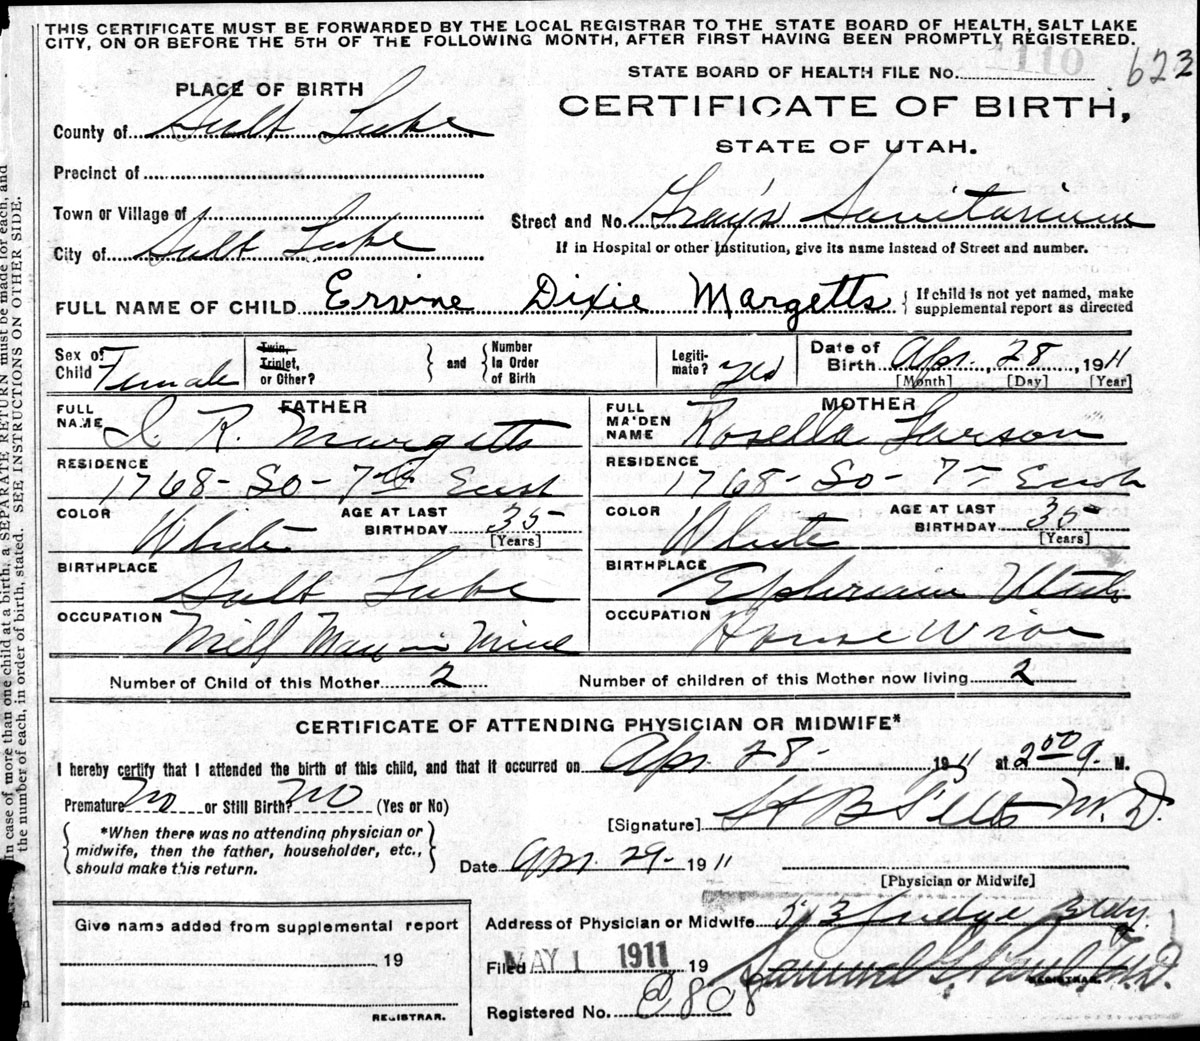 THIS CERTIFICATE MUST BE FORWARDED BY THE LOCAL REGISTRAR TO THE STATE BOARD OF HEALTH, SALT LAKE
CITY, ON OR BEFORE THE 5TH OF THE FOLLOWING MONTH, AFTER FIRST HAVING BEEN PROMPTLY REGISTERED.
623
STATE BOARD OF HEALTH FILE No.
PLACE OF BIRTH
CERTIFICATE OF BIRTH,
STATE OF UTAH.
County of Salt Lake
Precinct of
Town or Village of
Street and No. Gray's Sanitarium
City of Salt Lake
If in Hospital or other Institution, give its name instead of Street and number.
FULL NAME OF CHILD Ervine Dixie Margetts { If child is not yet named, make supplemental report as directed
Sex of Child Female
Twin, Triplet, or Other? } and { Number In Order of Birth
Legiti-mate? yes
Date of Birth Apr. 28, 1911
[Month] [Day] [Year]
FATHER
FULL NAME R. Margetts
RESIDENCE 1768- So- 7th East
COLOR White AGE AT LAST BIRTHDAY 35 [Years]
BIRTHPLACE Salt Lake
OCCUPATION Mill Man in Mine
MOTHER
FULL MAIDEN NAME Rosella Larson
RESIDENCE 1768- So- 7th East
COLOR White AGE AT LAST BIRTHDAY 35 [Years]
BIRTHPLACE Ephriam Utah
OCCUPATION House Wife
Number of Child of this Mother 2 Number of children of this Mother now living 2
CERTIFICATE OF ATTENDING PHYSICIAN OR MIDWIFE*
I hereby certify that I attended the birth of this child, and that it occurred on Apr. 28- 1911 at 2 00 a. M.
Premature? no or Still Birth? no (Yes or No)
[Signature] M.D.
{ *When there was no attending physician or midwife, then the father, householder, etc., should make this return. }
Date Apr. 29- 1911
[Physician or Midwife]
Give name added from supplemental report
19
REGISTRAR.
Address of Physician or Midwife Judge Bldg.
Filed MAY 1 1911 19
REGISTRAR.
Registered No. 808
In case of more than one child at a birth, a SEPARATE RETURN must be made for each, and
the number of each, in order of birth, stated. SEE INSTRUCTIONS ON OTHER SIDE.